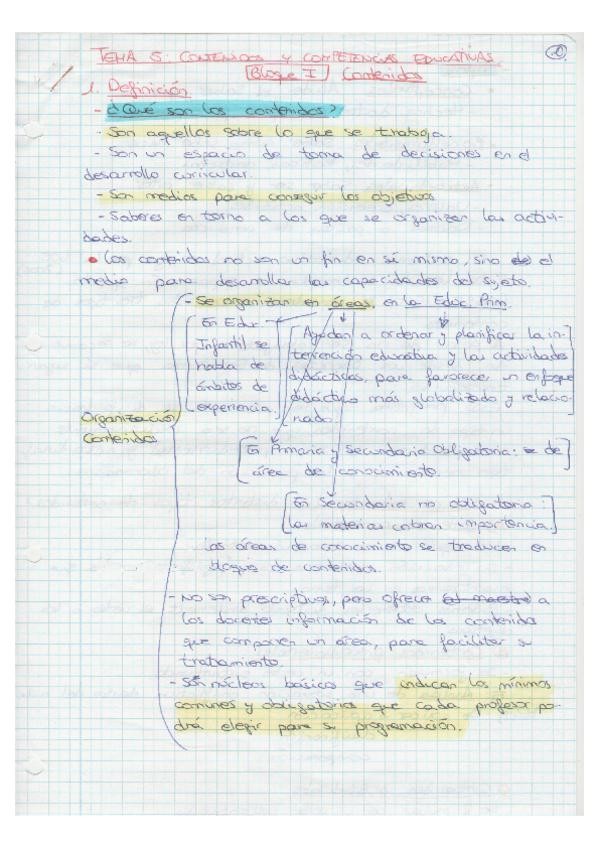 TEMA 5: CONTENIDOS Y COMPETENCIAS EDUCATIVAS.
Bloque I Contenidos
1. Definición
- ¿Qué son los contenidos?
- Son aquellos sobre lo que se trabaja.
- Son un espacio de toma de decisiones en el
desarrollo curricular.
- Son medios para conseguir los objetivos
- Saberes en torno a los que se organizan las activi-
dades.
• Los contenidos no son un fin en sí mismo, sino el
medio para desarrollar las capacidades del sujeto.
Organización
Contenidos
- Se organizan en áreas, en la Educ Prim
En Educ
Infantil se
habla de
ámbitos de
experiencia.
Ayudan a ordenar y planificar la in-
tervención educativa y las actividades
didácticas, para favorecer un enfoque
didáctico más globalizado y relacio-
nado.
En Primaria y Secundaria Obligatoria: de
área de conocimiento.
En Secundaria no obligatoria:
las materias cobran importancia.
las áreas de conocimiento se traducen en
bloques de contenidos.
- NO son prescriptivos, pero ofrece (al maestro) a
los docentes información de los contenidos
que componen un área, para facilitar su
tratamiento.
- Son núcleos básicos que indican los mínimos
comunes y obligatorios que cada profesor po-
drá elegir para su programación.